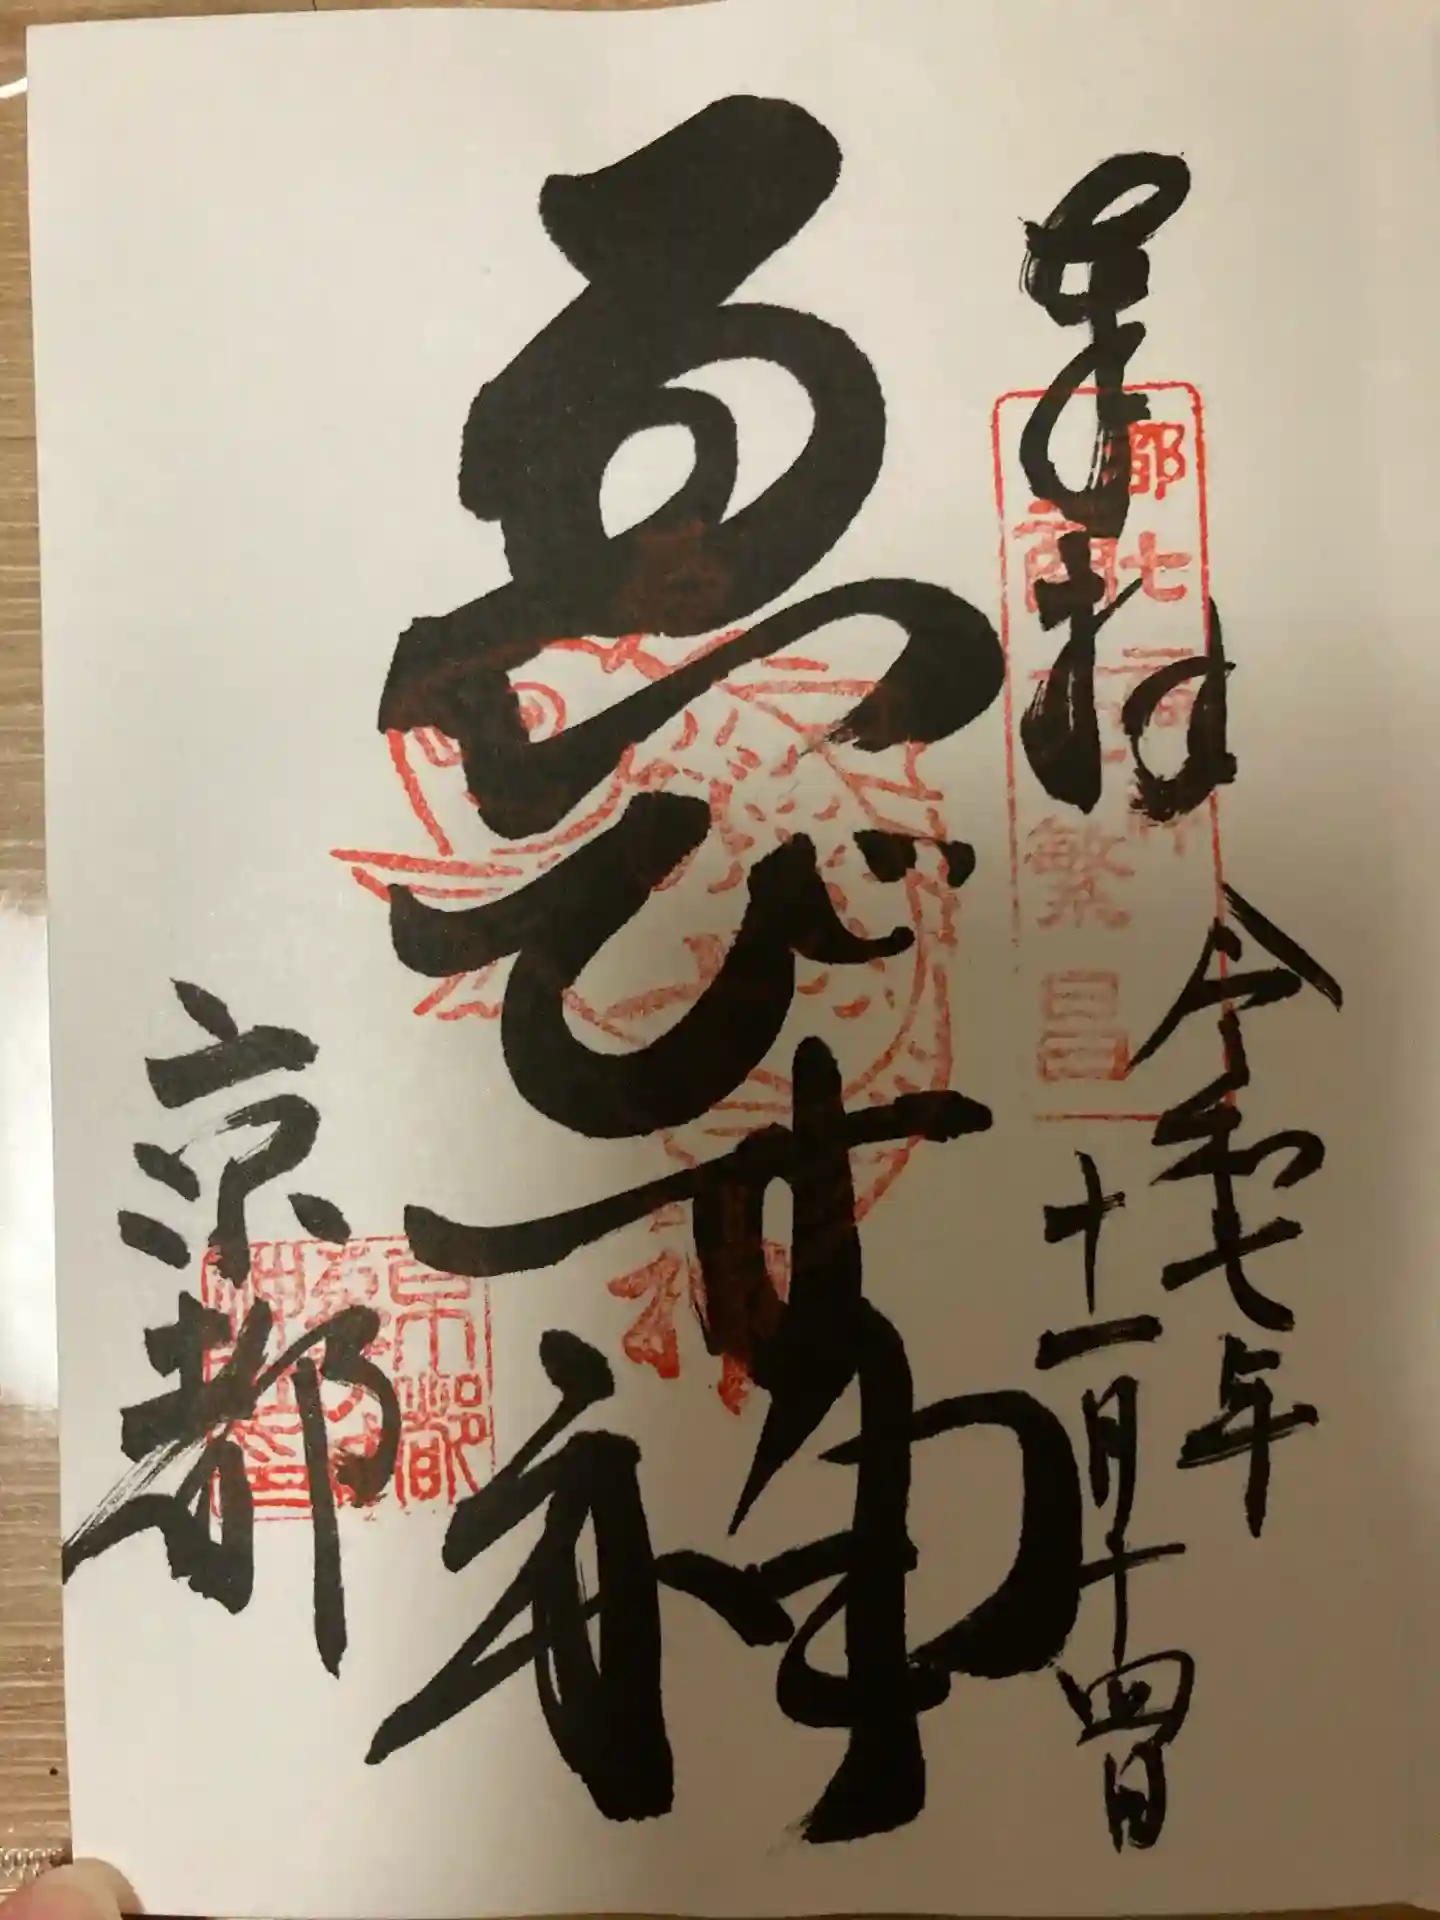 奉拝
都七福神
商売繁昌
令和七年
十一月十四日
ゑびす神
京都